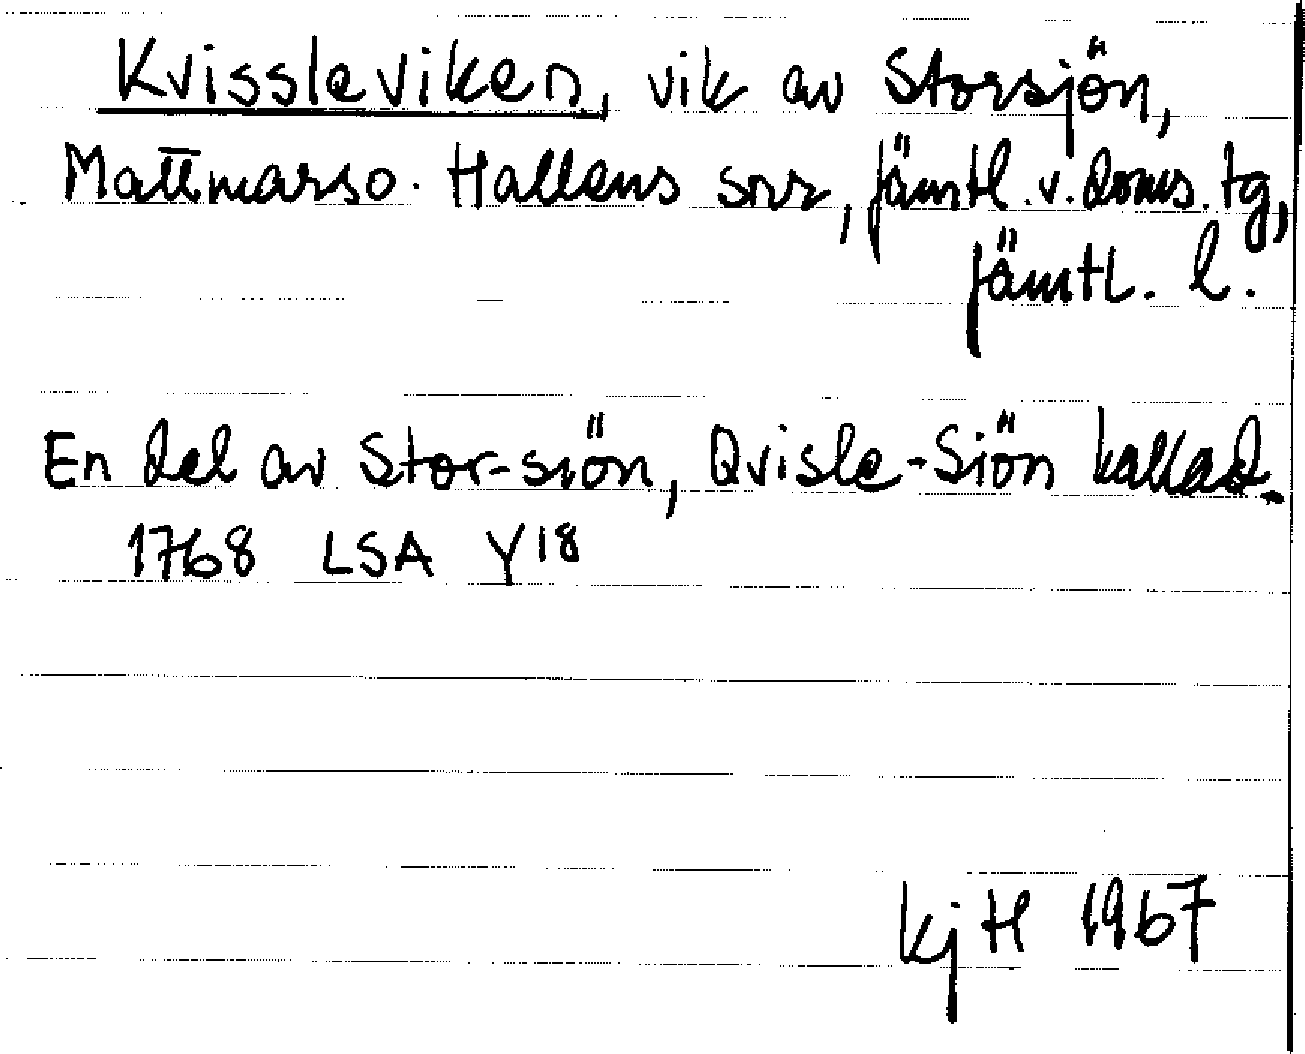 Kvissleviken, vik av Storsjön,
Mattmars o. Hallens snr, Jämtl. v. doms. tg,
Jämtl. l.
En del av Stor-siön, Qvisle-Siön kallad.
1768 LSA Y18
Kj H 1967